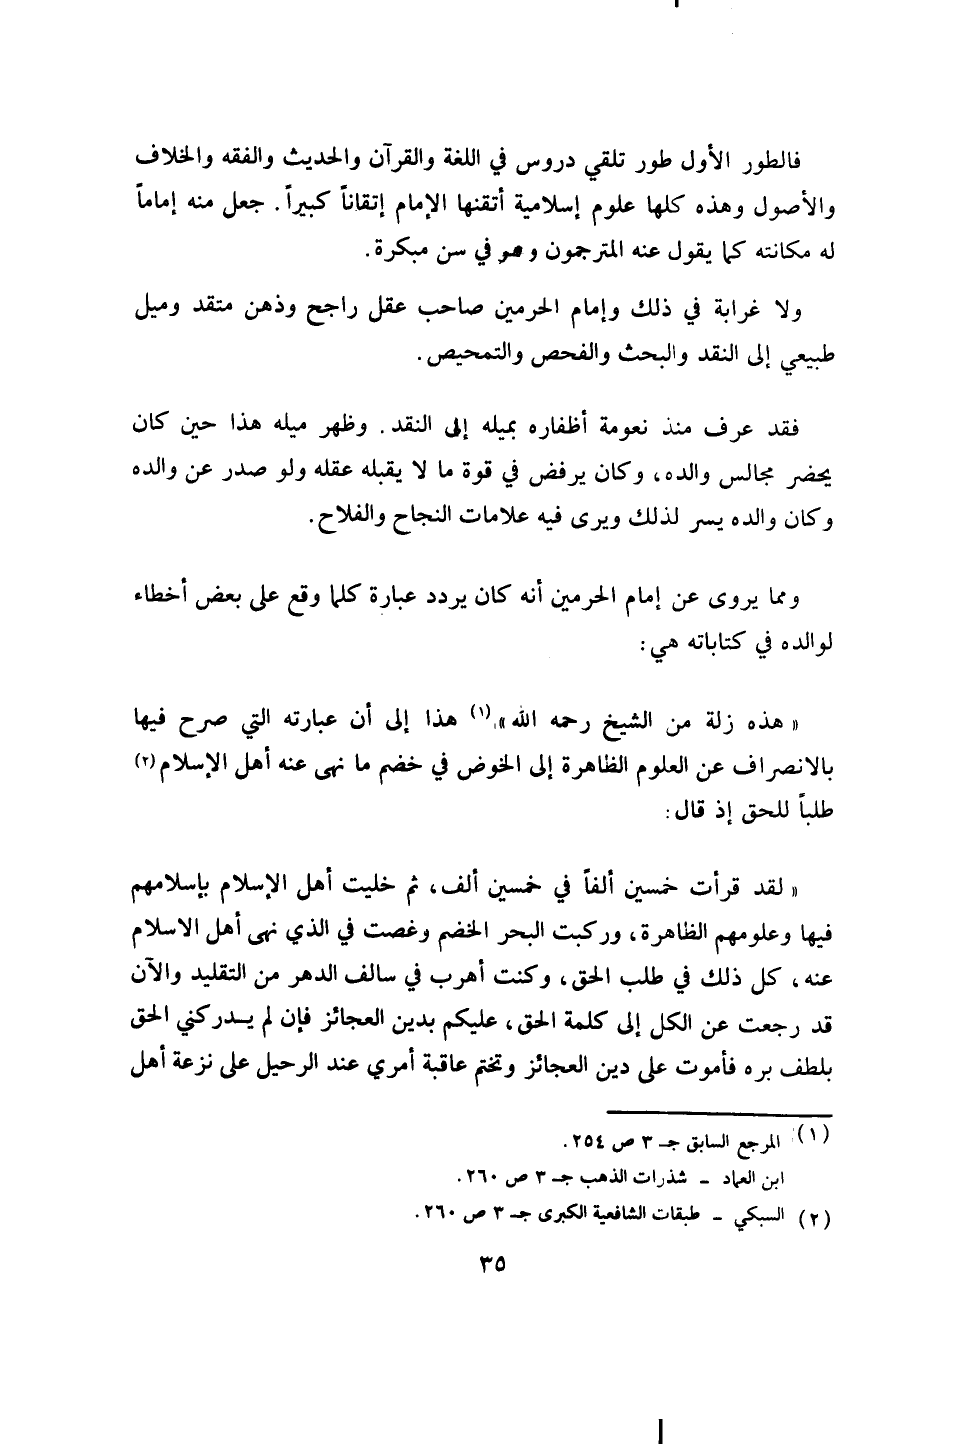 فالطور الأول طور تلقي دروس في اللغة والقرآن والحديث والفقه والخلاف
والأصول وهذه كلها علوم إسلامية أتقنها الإمام إتقاناً كبيراً. جعل منه إماماً
له مكانته كما يقول عنه المترجمون وهو في سن مبكرة.
ولا غرابة في ذلك وإمام الحرمين صاحب عقل راجح وذهن متقد وميل
طبيعي إلى النقد والبحث والفحص والتمحيص.
فقد عرف منذ نعومة أظفاره بميله إلى النقد. وظهر ميله هذا حين كان
يحضر مجالس والده، وكان يرفض في قوة ما لا يقبله عقله ولو صدر عن والده
وكان والده يسر لذلك ويرى فيه علامات النجاح والفلاح.
ومما يروى عن إمام الحرمين أنه كان يردد عبارة كلما وقع على بعض أخطاء
لوالده في كتاباته هي:
« هذه زلة من الشيخ رحمه الله »،(١) هذا إلى أن عبارته التي صرح فيها
بالانصراف عن العلوم الظاهرة إلى الخوض في خضم ما نهى عنه أهل الإسلام(٢)
طلباً للحق إذ قال:
« لقد قرأت خمسين ألفاً في خمسين ألف، ثم خليت أهل الإسلام بإسلامهم
فيها وعلومهم الظاهرة، وركبت البحر الخضم وغصت في الذي نهى أهل الاسلام
عنه، كل ذلك في طلب الحق، وكنت أهرب في سالف الدهر من التقليد والآن
قد رجعت عن الكل إلى كلمة الحق، عليكم بدين العجائز فإن لم يـدركني الحق
بلطف بره فأموت على دين العجائز وتختم عاقبة أمري عند الرحيل على نزعة أهل
(١) المرجع السابق جـ ٣ ص ٢٥٤.
ابن العماد - شذرات الذهب جـ ٣ ص ٢٦٠.
(٢) السبكي - طبقات الشافعية الكبرى جـ ٣ ص ٢٦٠.
٣٥